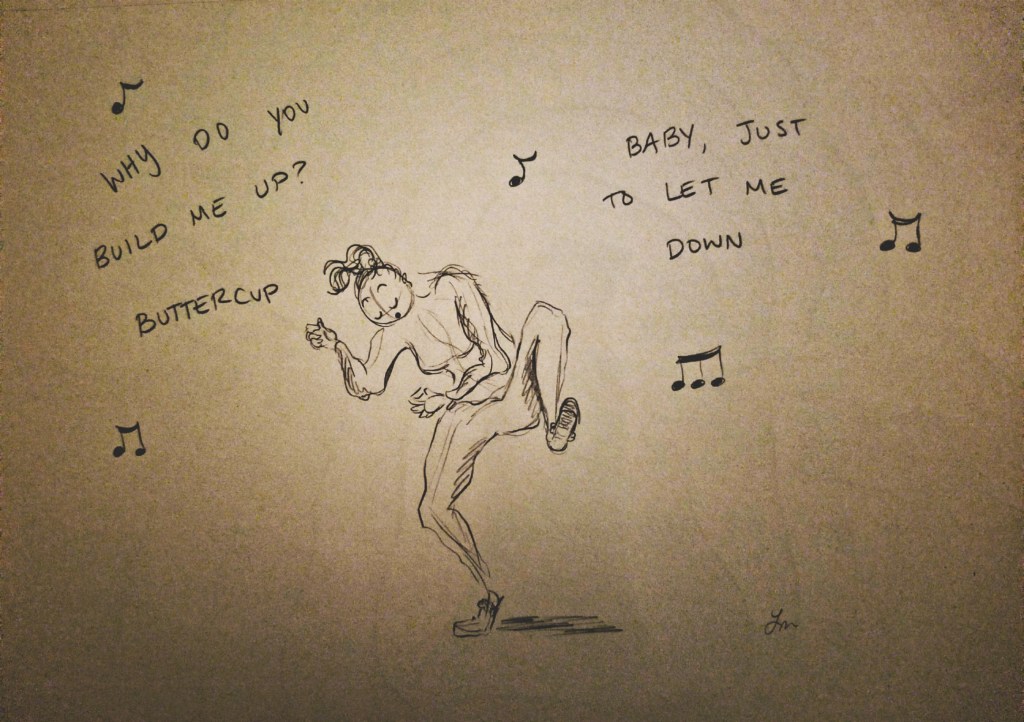 WHY DO YOU
BUILD ME UP?
BUTTERCUP
BABY, JUST
TO LET ME
DOWN